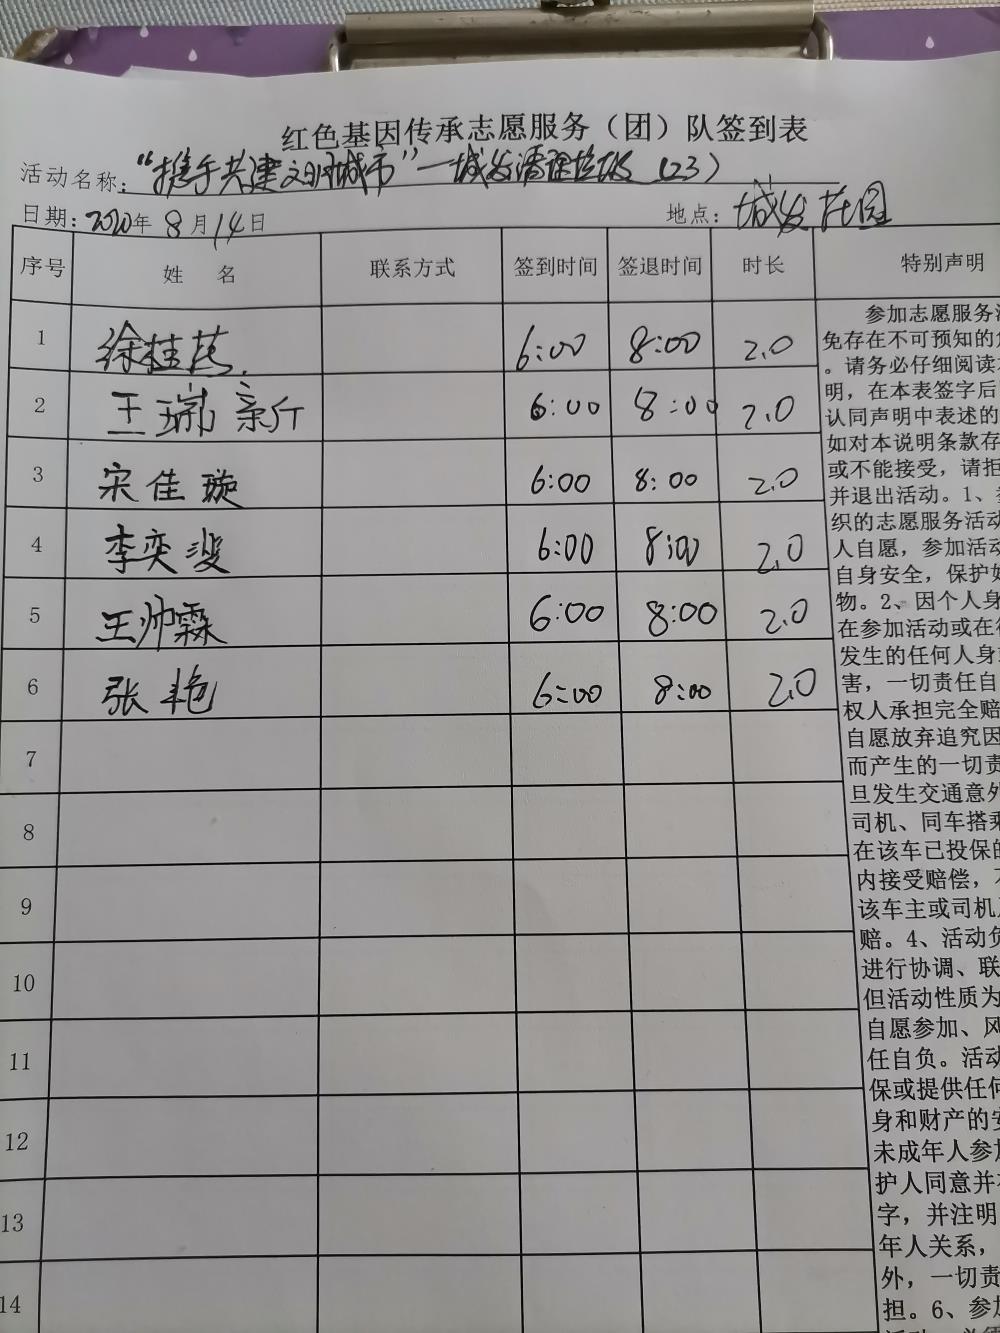 红色基因传承志愿服务（团）队签到表
活动名称：“携手共建文明城市”—城发清理垃圾（23）
日期：2020年8月14日 地点：城发花园
序号 姓名 联系方式 签到时间 签退时间 时长 特别声明
1 徐桂燕 6:00 8:00 2.0
2 王瑞新 6:00 8:00 2.0
3 宋佳璇 6:00 8:00 2.0
4 李奕 6:00 8:00 2.0
5 王帅霖 6:00 8:00 2.0
6 张艳 6:00 8:00 2.0
7
8
9
10
11
12
13
14
参加志愿服务活
免存在不可预知的危
。请务必仔细阅读本
明，在本表签字后
认同声明中表述的
如对本说明条款存
或不能接受，请拒
并退出活动。1、参
织的志愿服务活动
人自愿，参加活动
自身安全，保护好
物。2、因个人身
在参加活动或在往
发生的任何人身
害，一切责任自
权人承担完全赔
自愿放弃追究因
而产生的一切责
旦发生交通意外
司机、同车搭乘
在该车已投保的
内接受赔偿，不
该车主或司机
赔。4、活动负
进行协调、联
但活动性质为
自愿参加、风
任自负。活动
保或提供任何
身和财产的安
未成年人参加
护人同意并在
字，并注明
年人关系，
外，一切责
担。6、参加